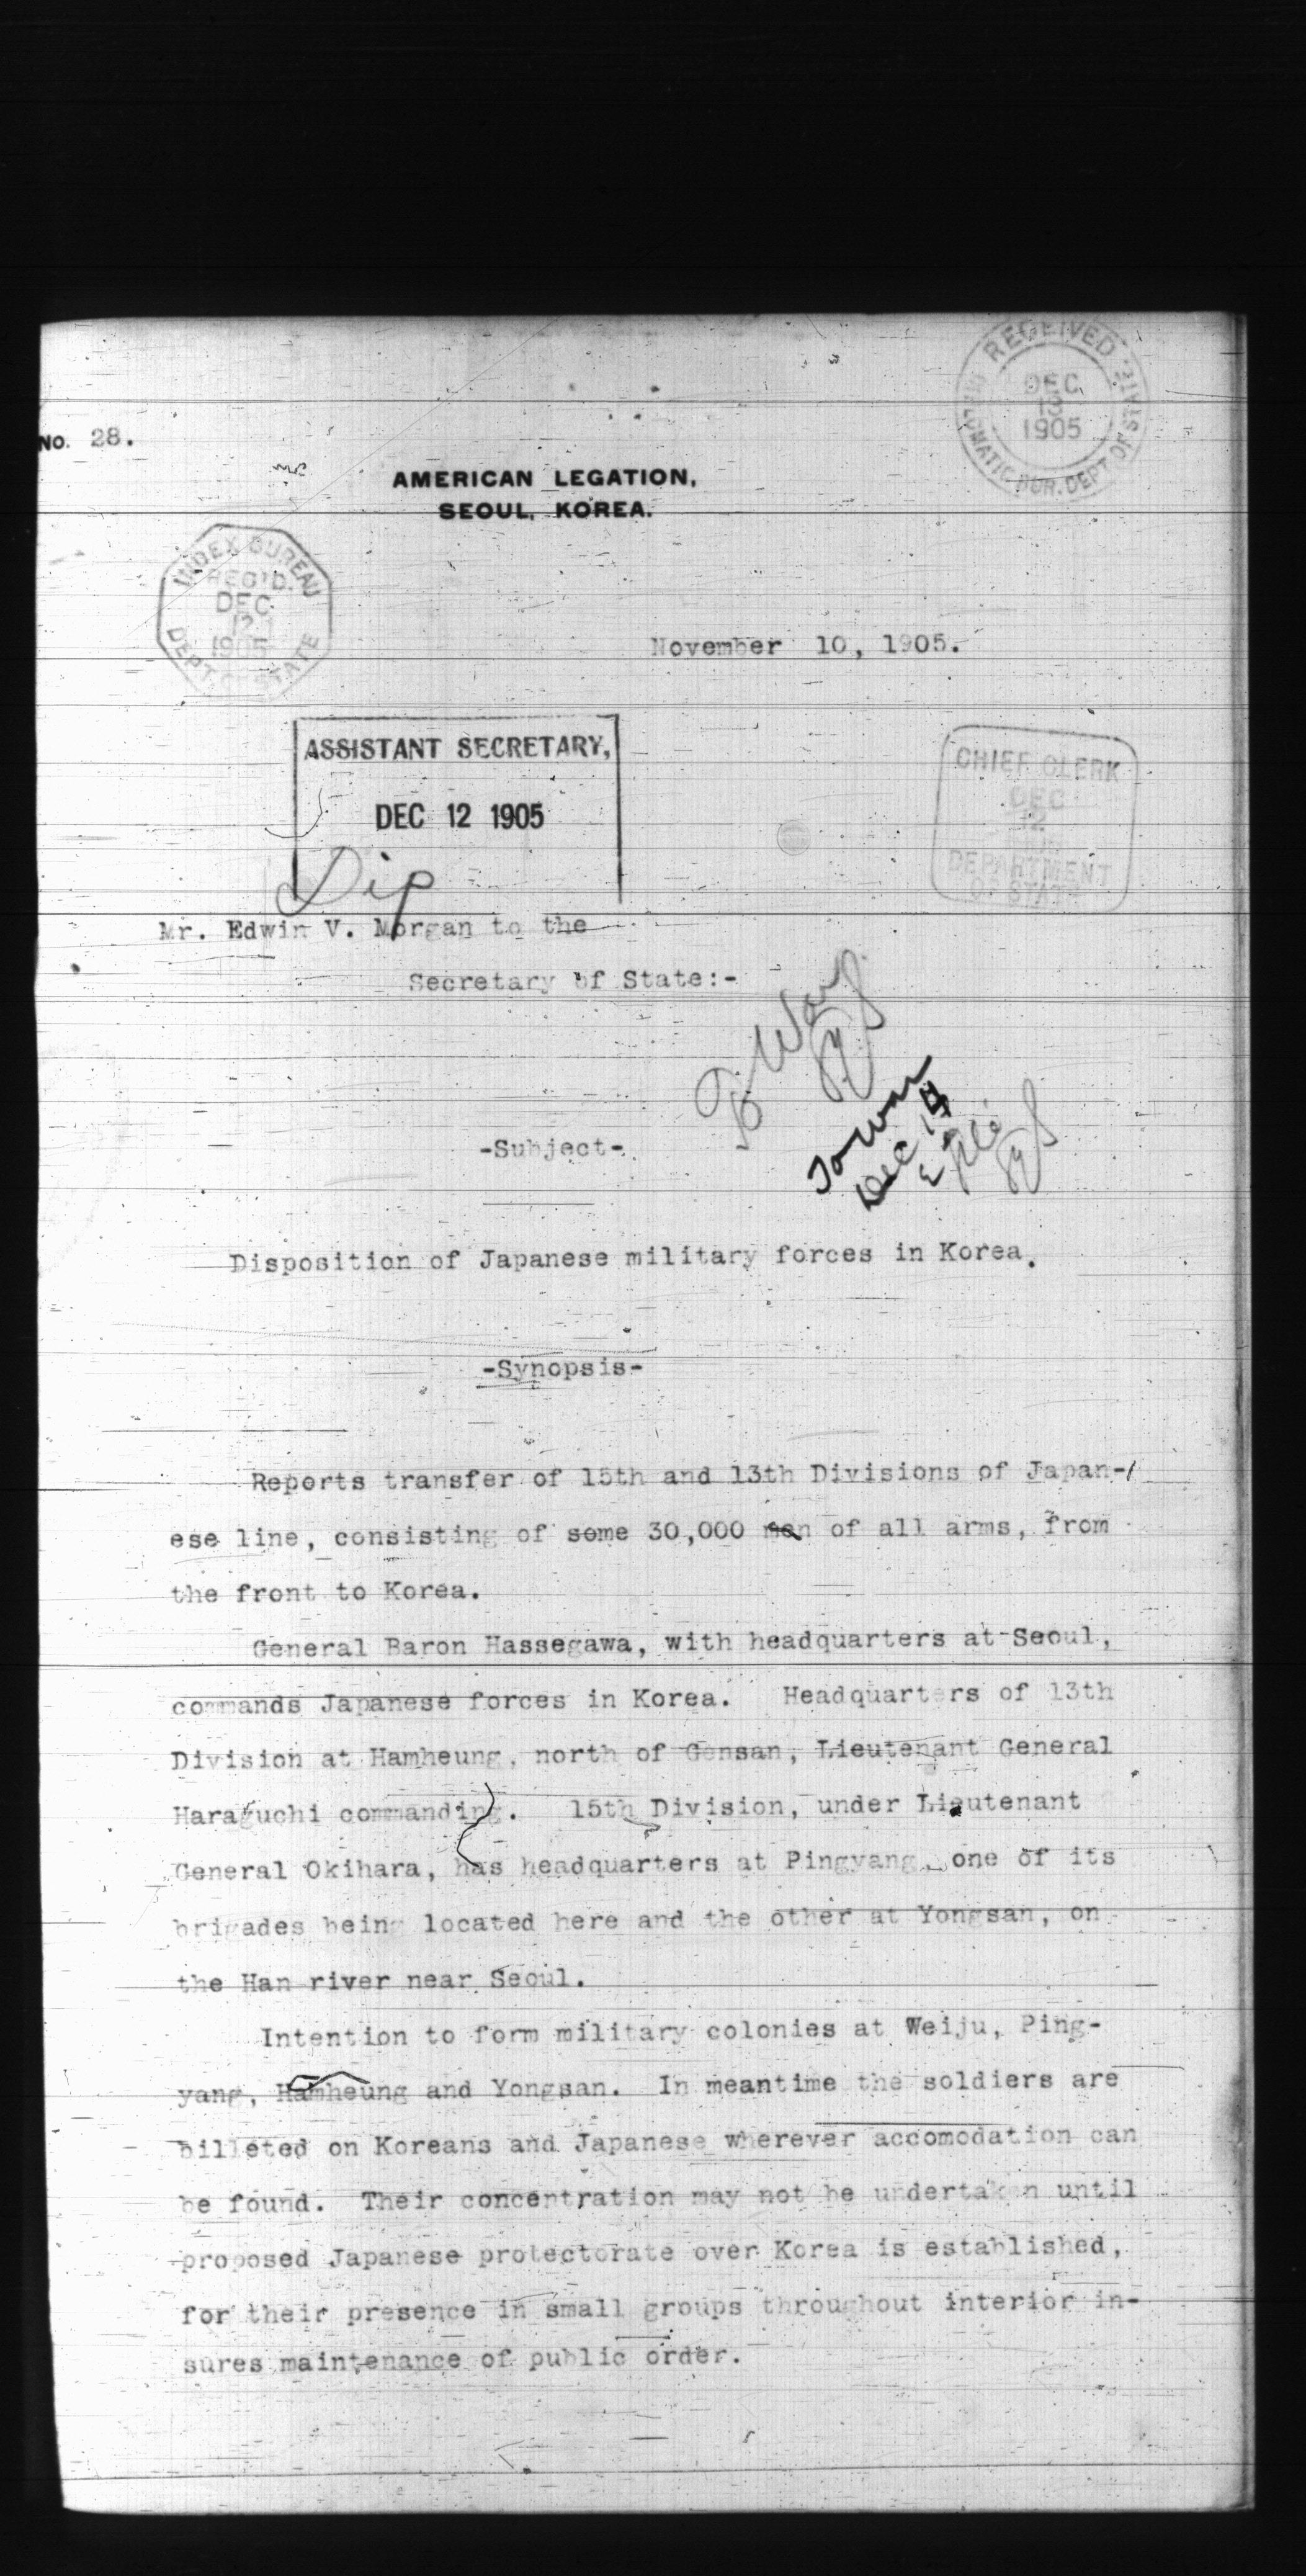 RECEIVED
DEC
13
1905
DIPLOMATIC BUR. DEPT OF STATE
No. 28.
AMERICAN LEGATION,
SEOUL, KOREA.
INDEX BUREAU
REC'D.
DEC
12
1905
DEPT. OF STATE
November 10, 1905.
ASSISTANT SECRETARY,
DEC 12 1905
Dip
CHIEF CLERK
DEC
12
DEPARTMENT
OF STATE
Mr. Edwin V. Morgan to the
Secretary of State:-
To War
To War
Dec 14
-Subject-
Disposition of Japanese military forces in Korea.
-Synopsis-
Reports transfer of 15th and 13th Divisions of Japan-
ese line, consisting of some 30,000 men of all arms, from
the front to Korea.
General Baron Hassegawa, with headquarters at Seoul,
commands Japanese forces in Korea. Headquarters of 13th
Division at Hamheung, north of Gensan, Lieutenant General
Haraguchi commanding. 15th Division, under Lieutenant
General Okihara, has headquarters at Pingyang, one of its
brigades being located here and the other at Yongsan, on
the Han river near Seoul.
Intention to form military colonies at Weiju, Ping-
yang, Hamheung and Yongsan. In meantime the soldiers are
billeted on Koreans and Japanese wherever accomodation can
be found. Their concentration may not be undertaken until
proposed Japanese protectorate over Korea is established,
for their presence in small groups throughout interior in-
sures maintenance of public order.